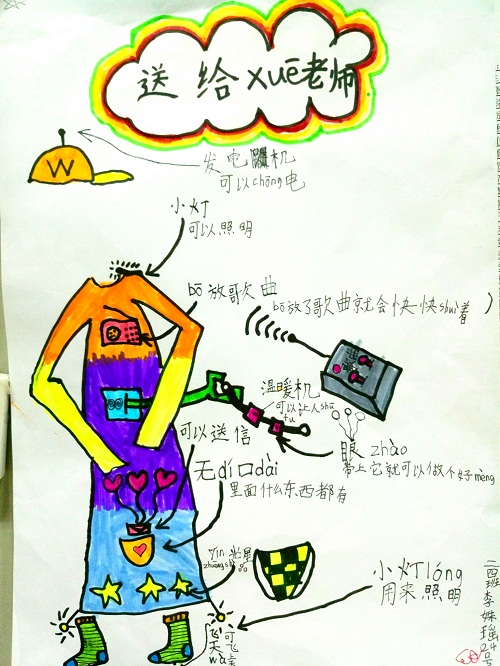 送给xuē老师
W
发电机
可以chōng电
小灯
可以照明
bō放歌曲
bō放了歌曲就会快快shuì着
温暖机
可以让人shū
fu
可以送信
眼zhào
带上它就可以做个好mèng
无dǐ口dài
里面什么东西都有
yín光星
zhuāng shì
小灯lóng
用来照明
飞天wà
可飞
二四班李姝瑶24号